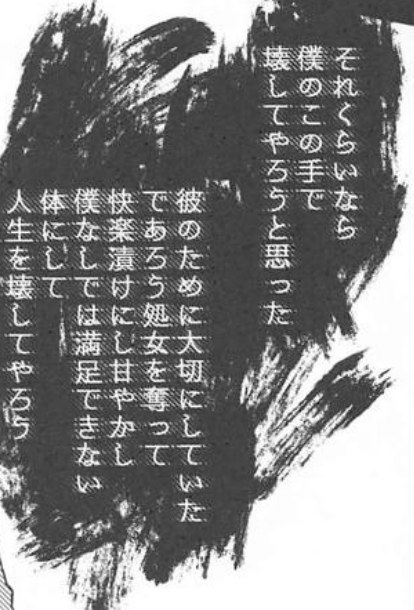 それくらいなら
僕のこの手で
壊してやろうと思った
彼のために大切にしていた
であろう処女を奪って
快楽漬けにし甘やかし
僕なしでは満足できない
体にして
人生を壊してやろう